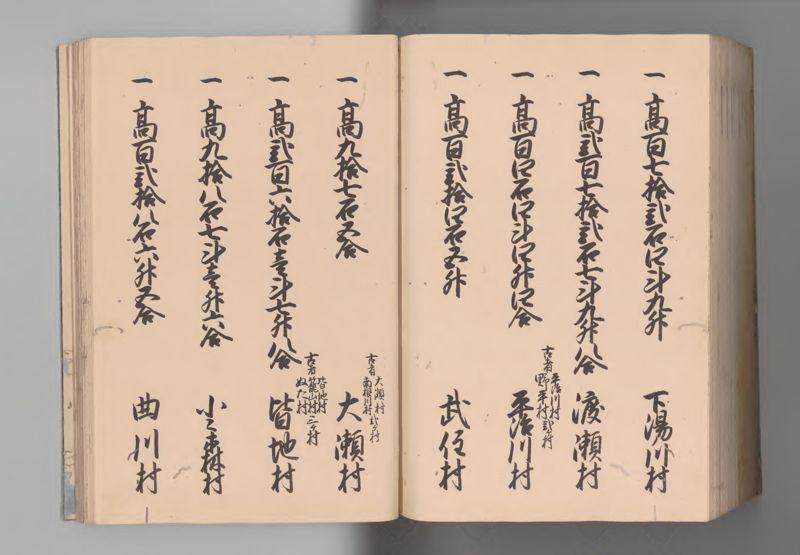 一 高百七拾弐石四斗九升 下湯川村
一 高弐百七拾弐石七斗九升八合 渡瀬村
一 高百四石四斗四升四合 平治川村
古者 平治川村 野平村 弐ヶ村
一 高百弐拾四石五升 武住村
一 高九拾七石五合 大瀬村
古者 大瀬村 南桧川村 弐ヶ村
一 高弐百六拾石壱斗七升八合 皆地村
古者 皆地村 籠山村 ぬた村 三ヶ村
一 高九拾八石七斗壱升六合 小々森村
一 高百弐拾八石六升五合 曲川村